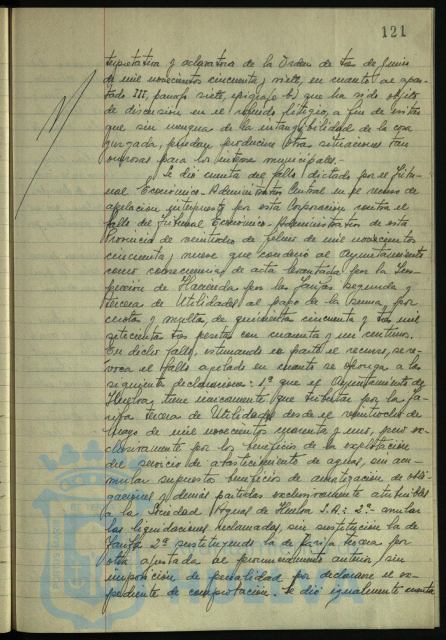 121
terpretativa y aclaratoria de la Orden de tres de Junio
de mil novecientos cincuenta y siete, en cuanto al apar-
tado III, párrafo siete, epígrafe b) que ha sido objeto
de discusión en el referido litigio, a fin de evitar
que sin mengua de la intangibilidad de la cosa
juzgada, puedan producirse otras situaciones tan
onerosas para los intereses municipales.-
Se dió cuenta del fallo dictado por el Tribu-
nal Económico-Administrativo Central en el recurso de
apelación interpuesto por esta Corporación contra el
fallo del Tribunal Económico-Administrativo de esta
Provincia de veintiocho de febrero de mil novecientos
cincuenta y nueve que condenó al Ayuntamiento
como consecuencia de acta levantada por la Ins-
pección de Hacienda por las Tarifas segunda y
tercera de Utilidades al pago de la suma, por
cuotas y multas, de quinientas cincuenta y tres mil
setecientas tres pesetas con cuarenta y un céntimos.
En dicho fallo, estimando en parte el recurso, se re-
voca el fallo apelado en cuanto se oponga a las
siguientes declaraciones: 1ª que el Ayuntamiento de
Huelva, tiene únicamente que tributar por la ta-
rifa tercera de Utilidades desde el veintiocho de
Mayo de mil novecientos cuarenta y uno, pero ex-
clusivamente por los beneficios de la explotación
del servicio de abastecimiento de aguas, sin acu-
mular supuestos beneficios de amortización de obli-
gaciones y demás partidas exclusivamente atribuibles
a la Sociedad Aguas de Huelva S.A.: 2º anular
las liquidaciones reclamadas, sin sustitución la de
Tarifa 2ª sustituyendo la de Tarifa tercera por
otra ajustada al pronunciamiento anterior, sin
imposición de penalidad por declararse el ex-
pediente de comprobación. Se dió igualmente cuenta